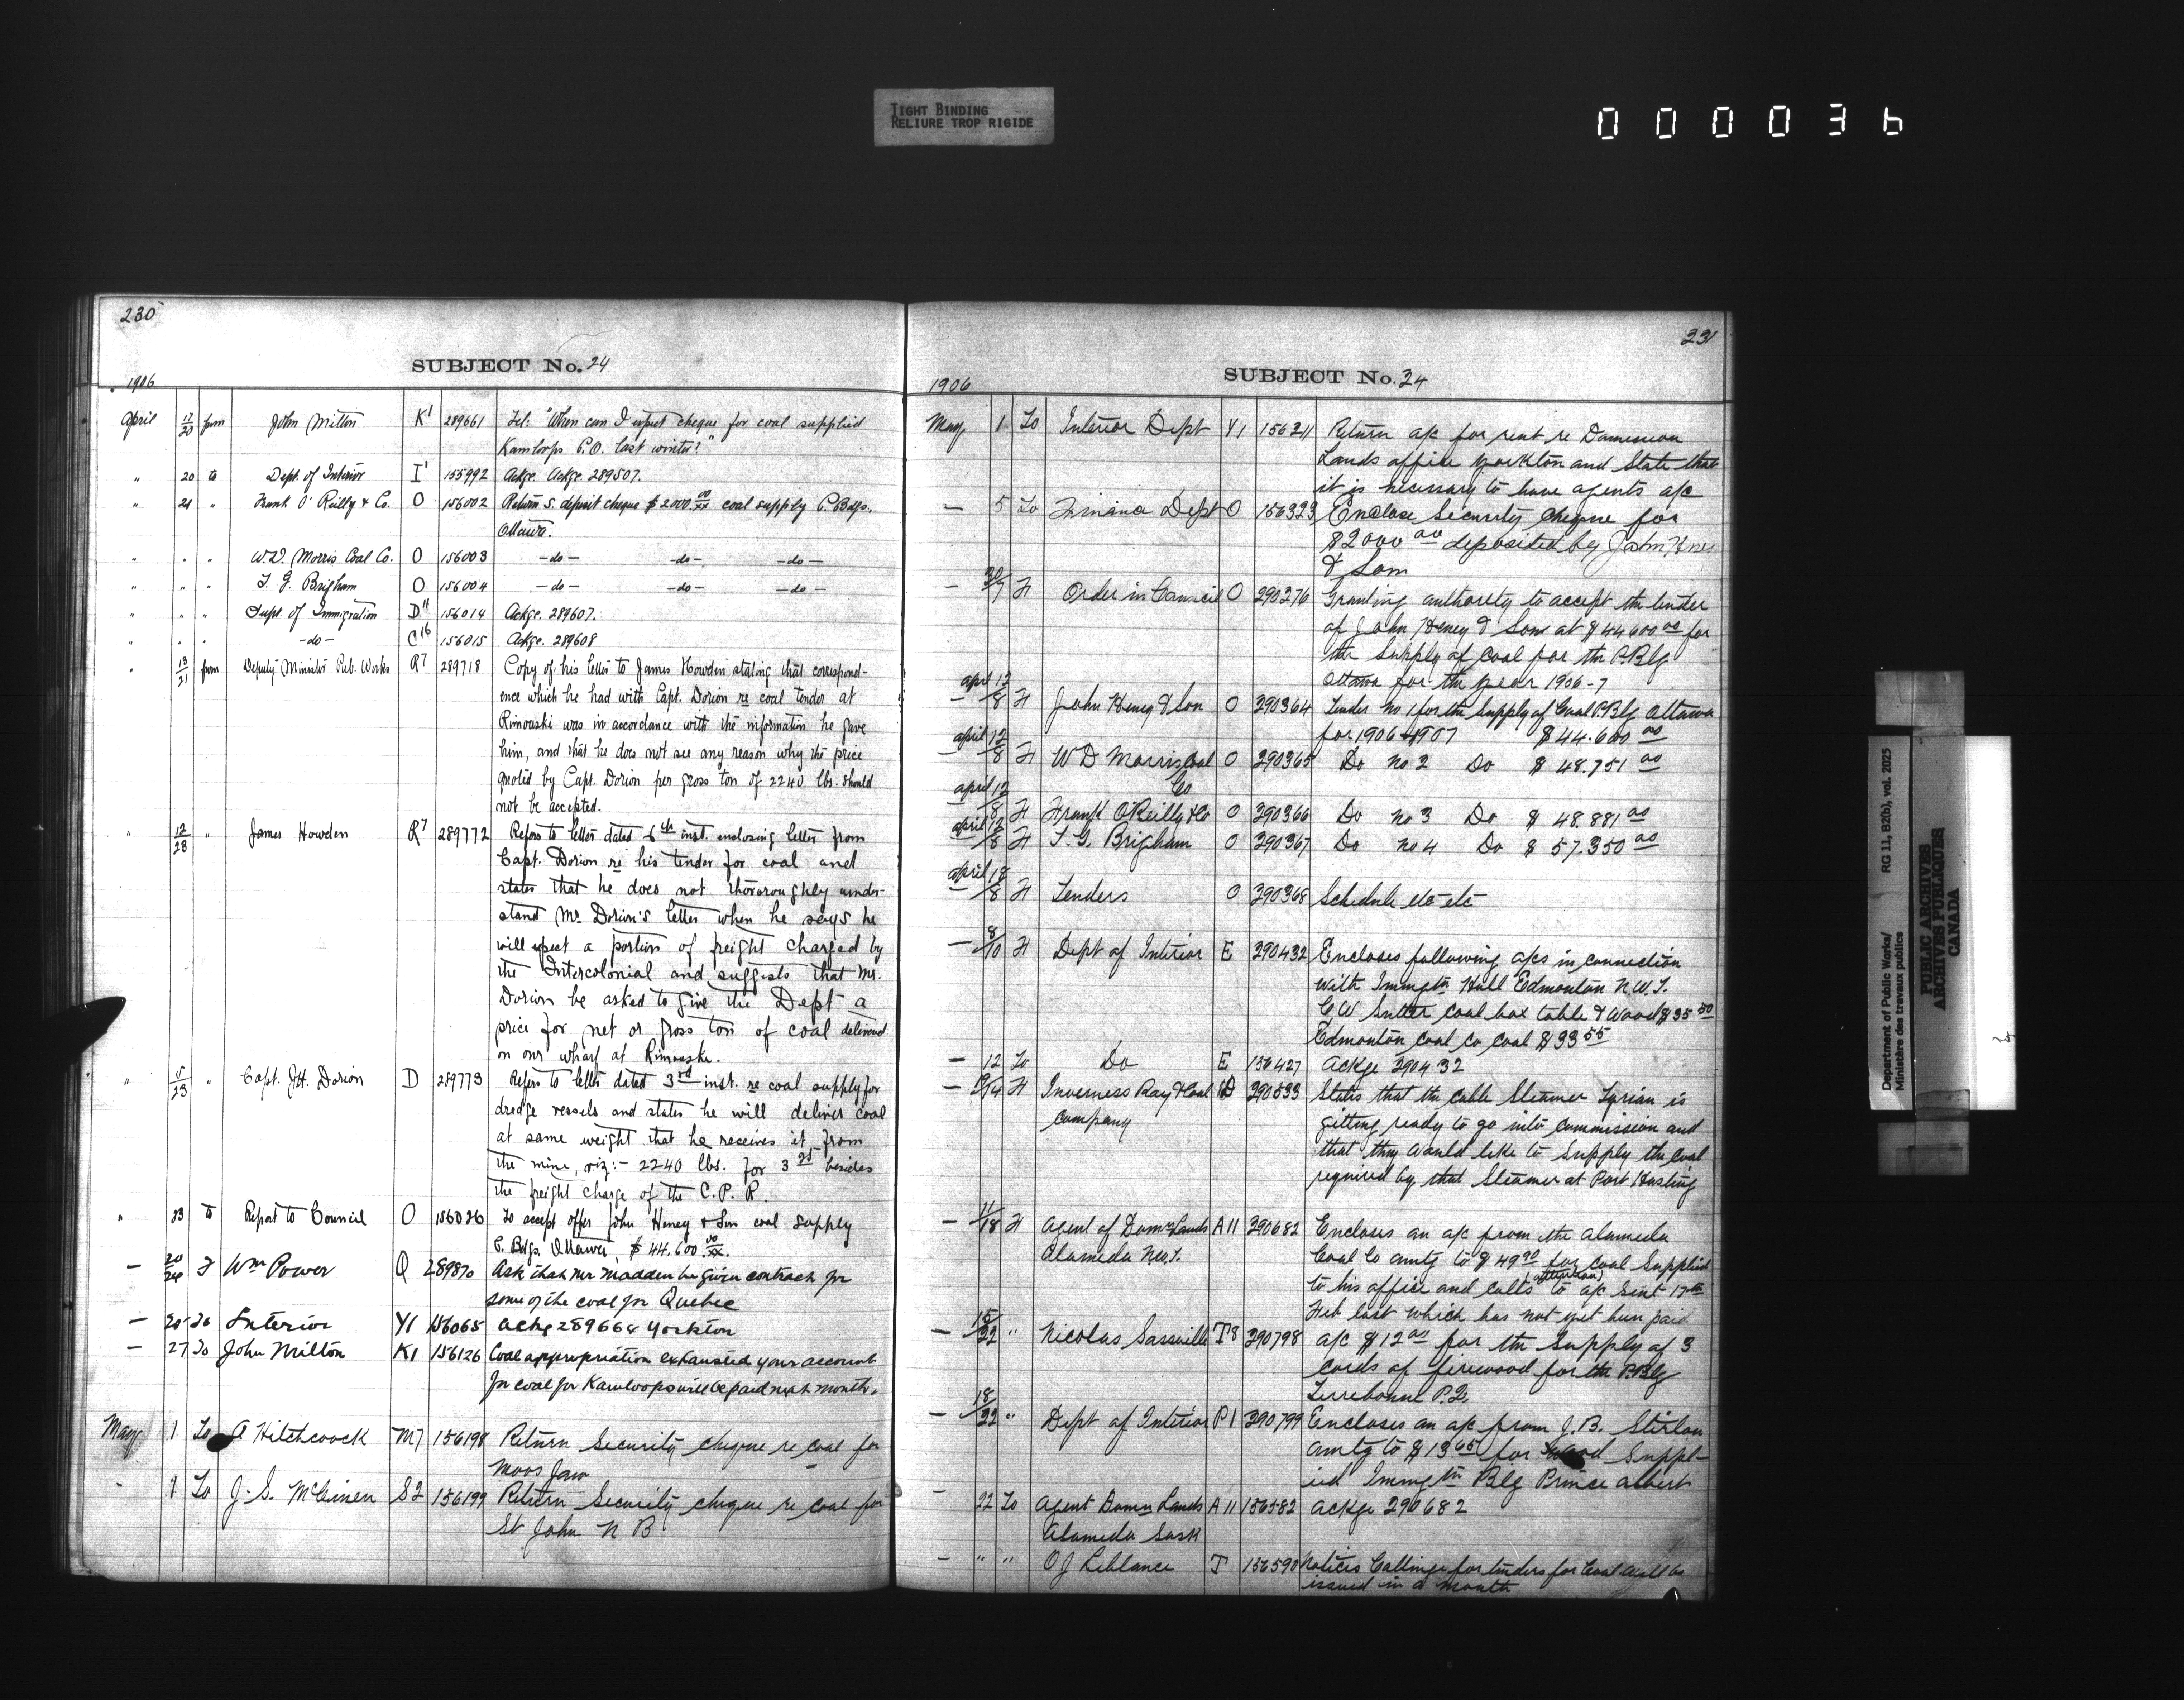 TIGHT BINDING
RELIURE TROP RIGIDE
000036
230
SUBJECT No. 24
1906
April 17/20 from John Milton K1 289661 Tel: "When can I expect cheque for coal supplied
Kamloops P.O. last winter?"
" 20 to Dept. of Interior I1 155992 Ackge. Ackge. 289507.
" 21 " Frank O'Reilly & Co. O 156002 Return S. deposit cheque $2000.00/xx coal supply P. Bdgs.
Ottawa.
" " " W.D. Morris Coal Co. O 156003 -do- -do- -do-
" " " T. G. Brigham O 156004 -do- -do- -do-
" " " Supt. of Immigration D11 156014 Ackge. 289607.
" " " -do- C16 156015 Ackge. 289608
" 13/21 from Deputy Minister Pub. Works R7 289718 Copy of his letter to James Howden stating that correspond-
ence which he had with Capt. Dorion re coal tender at
Rimouski was in accordance with the information he gave
him, and that he does not see any reason why the price
quoted by Capt. Dorion per gross ton of 2240 lbs. should
not be accepted.
" 12/23 " James Howden R7 289772 Refers to letter dated 6th inst. enclosing letter from
Capt. Dorion re his tender for coal and
states that he does not thoroughly under-
stand Mr. Dorion's letter when he says he
will expect a portion of freight charged by
the Intercolonial and suggests that Mr.
Dorion be asked to give the Dept a
price for net or gross ton of coal delivered
on our wharf at Rimouski.
" 5/23 " Capt. J.H. Dorion D 289773 Refers to letter dated 3rd inst. re coal supply for
dredge vessels and states he will deliver coal
at same weight that he receives it from
the mine, viz:- 2240 lbs. for 3 25 besides
the freight charge of the C. P. R.
" 23 to Report to Council O 156026 To accept offer John Heney & Son coal supply
P. Bdgs. Ottawa, $44.600.00/xx.
— 20/24 F Wm Power Q 289870 Ask that Mr Madden be given contract for
some of the coal for Quebec
— 25 To Interior Y1 156065 Ackg 289664 Yorkton
— 27 To John Milton K1 156126 Coal appropriation exhausted your account
for coal for Kamloops will be paid next month.
May 1 To A Hitchcock M7 156198 Return Security cheque re coal for
Moos Jaw
- 1 To J. S. McGinen S2 156199 Return Security cheque re coal for
St John N B
231
SUBJECT No. 24
1906
May 1 To Interior Dept Y1 156211 Return a/c for rent re Dominion
Lands office Yorkton and State that
it is necessary to have agents a/c
— 5 To Finance Dept O 156323 Enclose Security cheque for
$2000 00 deposited by John Heney
& Son
— 30/7 F Order in Council O 290276 Granting authority to accept the tender
of John Heney & Son at $44600 00 for
the Supply of Coal for the P.Blg
Ottawa for the year 1906-7
April 12/8 F John Heney & Son O 290364 Tender No 1 for the Supply of Coal P.Blg Ottawa
for 1906-1907 $44.600 00
April 12/8 F W D Morris Coal O 290365 Do No 2 Do $48.751 00
Co
April 12/8 F Frank O'Reilly & Co O 290366 Do No 3 Do $48.881 00
April 12/8 F T. G. Brigham O 290367 Do No 4 Do $57.350 00
April 18/8 F Tenders O 290368 Schedule etc etc
— 8/10 F Dept of Interior E 290432 Encloses following a/cs in connection
with Immgtn Hall Edmonton N.W.T.
C W Sutter coal box table & Wood $35 50
Edmonton Coal Co coal $33 55
— 12 To Do E 156427 Ackge 290432
— 10/14 F Inverness Ray & Coal D 290533 States that the cable Steamer Tyrian is
Company getting ready to go into commission and
that they would like to Supply the coal
required by that Steamer at Port Hasting
— 11/18 F Agent of Domn Lands A11 290682 Encloses an a/c from the Alameda
Alameda N.W.T. Coal Co amtg to $49 90 for coal Supplied
to his office and calls (attention) to a/c sent 17th
Feb last which has not yet been paid
— 15/22 " Nicolas Sassville T8 290798 a/c $12 00 for the Supply of 3
cords of firewood for the P.Blg
Terrebonne P.Q.
— 18/22 " Dept of Interior P1 290799 Encloses an a/c from J. B. Stirton
amtg to $13 65 for Wood Suppl-
ied Immgtn Blg Prince Albert
— 22 To Agent Domn Lands A11 156582 Ackge 290682
Alameda Sask
— " " O J Leblance T 156590 Notices Calling for tenders for Coal will be
issued in a month
Department of Public Works/ RG 11, B2(b), vol. 2025
Ministère des travaux publics
PUBLIC ARCHIVES
ARCHIVES PUBLIQUES
CANADA